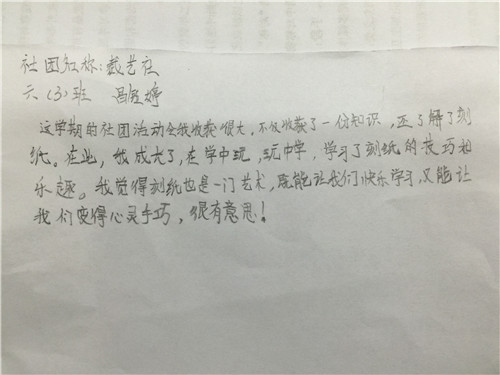 社团名称：截艺社
六（3）班 昌煜婷
这学期的社团活动令我收获很大，不仅收获了一份知识，还了解了刻
纸。在此，我成长了，在学中玩，玩中学，学习了刻纸的技巧和
乐趣。我觉得刻纸也是一门艺术，既能让我们快乐学习，又能让
我们变得心灵手巧，很有意思！